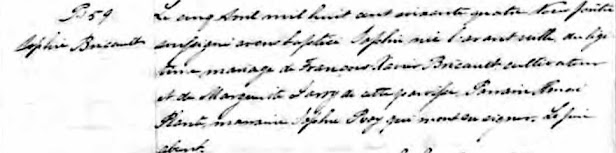 B 59
Sophie Bricault
Le cinq Aout mil huit cent soixante quatre nous prêtre
soussigné avons baptisé Sophie née l'avant veille du légi
time mariage de François Xavier Bricault cultivateur
et de Marguerite Larry de cette paroisse. Parrain Henri
Plante, marraine Sophie Roy qui n'ont su signer. Le père
absent.